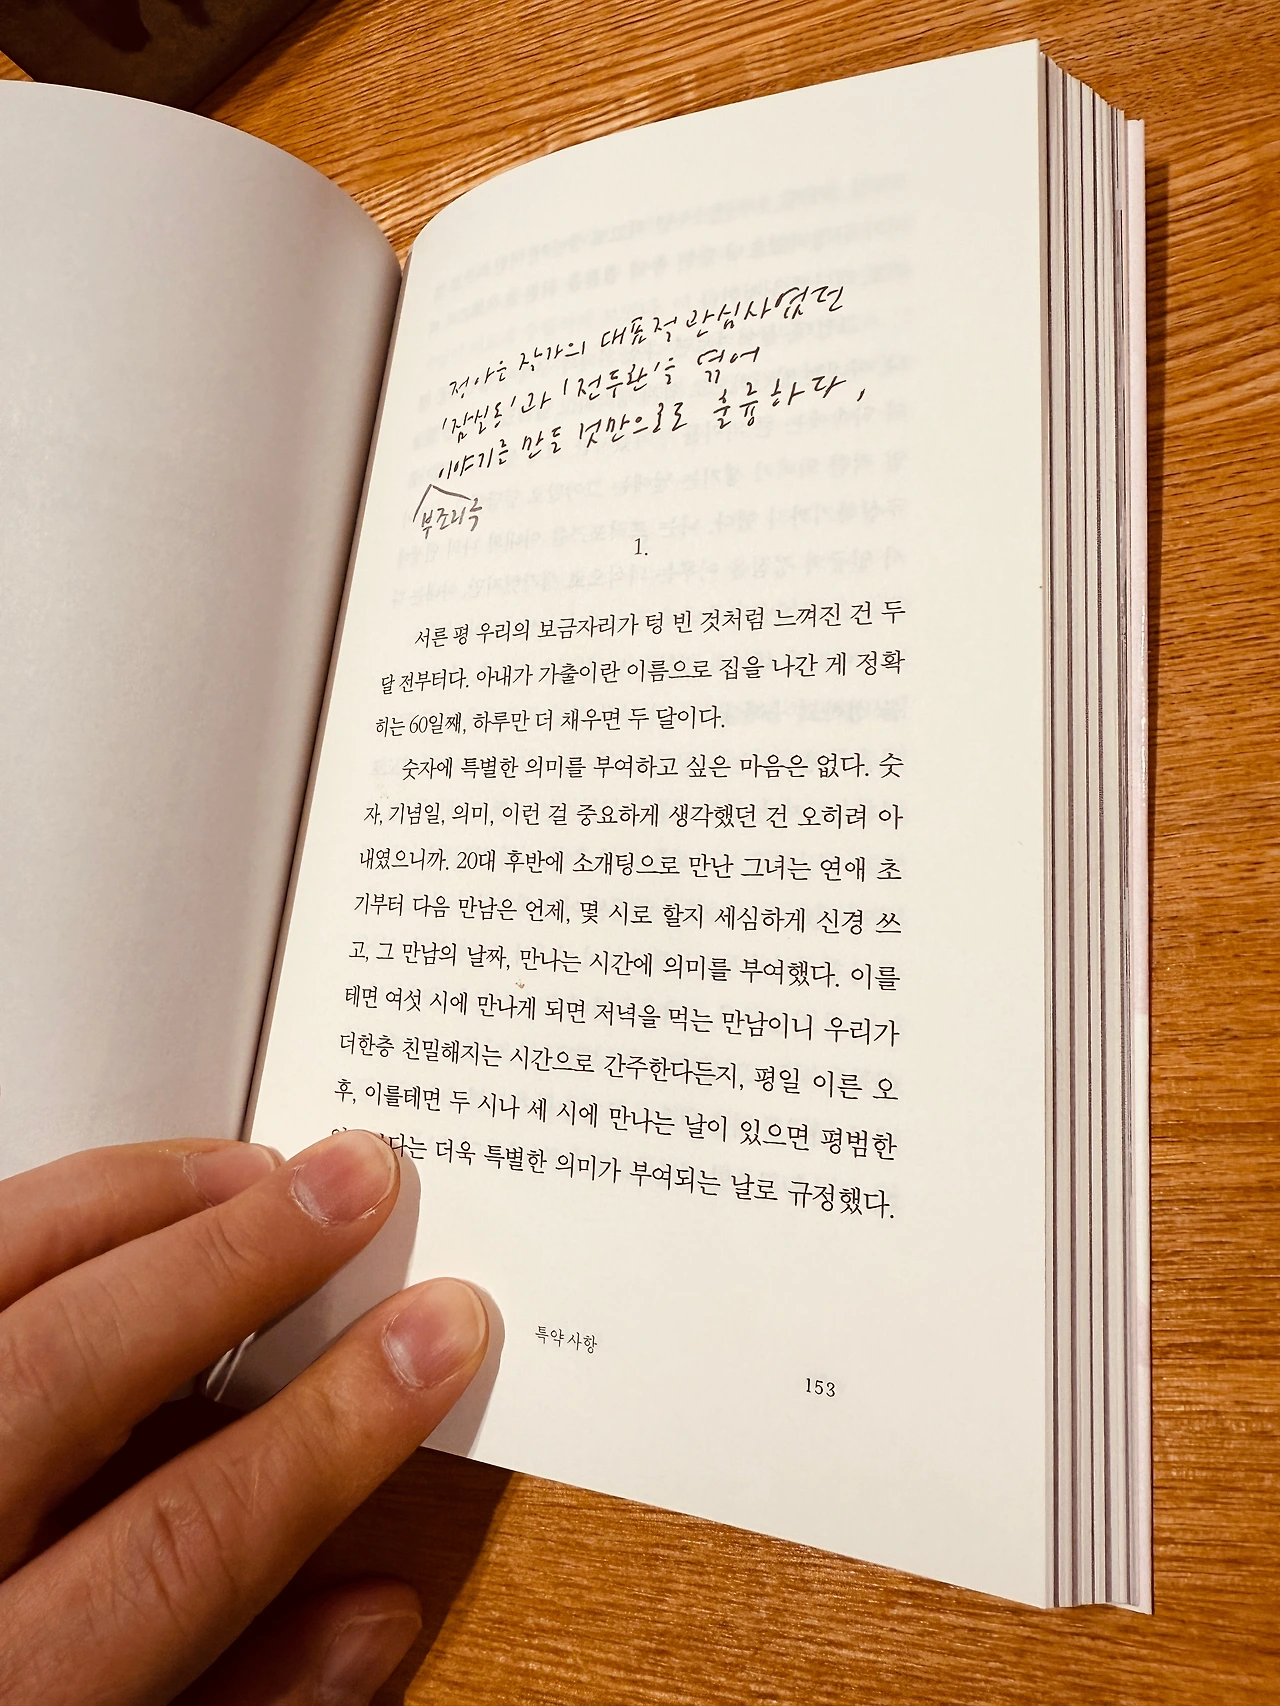 정아은 작가의 대표적 관심사였던
'잠실동'과 '전두환'을 엮어
이야기를 만든 것만으로도 훌륭하다,
부조리극
1.
서른 평 우리의 보금자리가 텅 빈 것처럼 느껴진 건 두
달 전부터다. 아내가 가출이란 이름으로 집을 나간 게 정확
히는 60일째, 하루만 더 채우면 두 달이다.
숫자에 특별한 의미를 부여하고 싶은 마음은 없다. 숫
자, 기념일, 의미, 이런 걸 중요하게 생각했던 건 오히려 아
내였으니까. 20대 후반에 소개팅으로 만난 그녀는 연애 초
기부터 다음 만남은 언제, 몇 시로 할지 세심하게 신경 쓰
고, 그 만남의 날짜, 만나는 시간에 의미를 부여했다. 이를
테면 여섯 시에 만나게 되면 저녁을 먹는 만남이니 우리가
더한층 친밀해지는 시간으로 간주한다든지, 평일 이른 오
후, 이를테면 두 시나 세 시에 만나는 날이 있으면 평범한
더욱 특별한 의미가 부여되는 날로 규정했다.
특약 사항
153